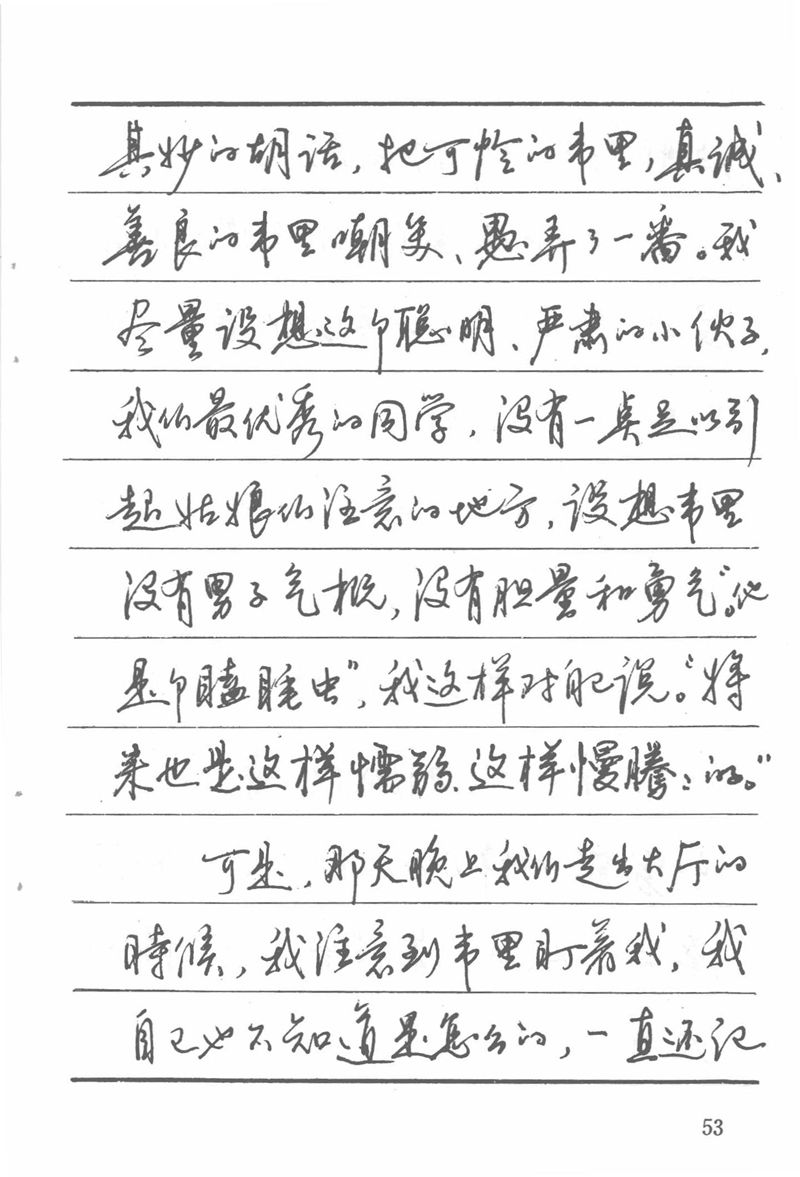 其妙的胡话，把可怜的韦里，真诚、
善良的韦里嘲笑、愚弄了一番。我
尽量设想这个聪明、严肃的小伙子，
我们最优秀的同学，没有一点足以引
起姑娘们注意的地方，设想韦里
没有男子气概，没有胆量和勇气。“他
是个瞌睡虫”，我这样对自己说。“将
来也是这样懦弱、这样慢腾：的。”
可是，那天晚上我们走出大厅的
時候，我注意到韦里盯着我，我
自己也不知道是怎么的，一直还记
53